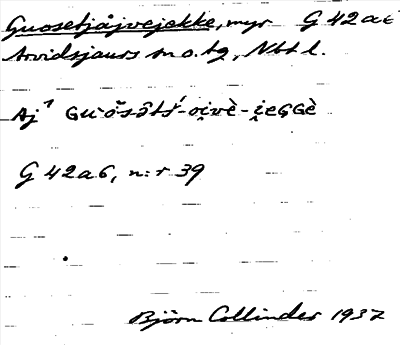 Guosetjåjvejekke, myr G 42 a c
Arvidsjaurs sn o. tg, Nbt l.
Aj¹ Gu·ŏšòts̀-oi̯vè-i̯eGGè
G 42 a 6, n:r 39
Björn Collinder 1937